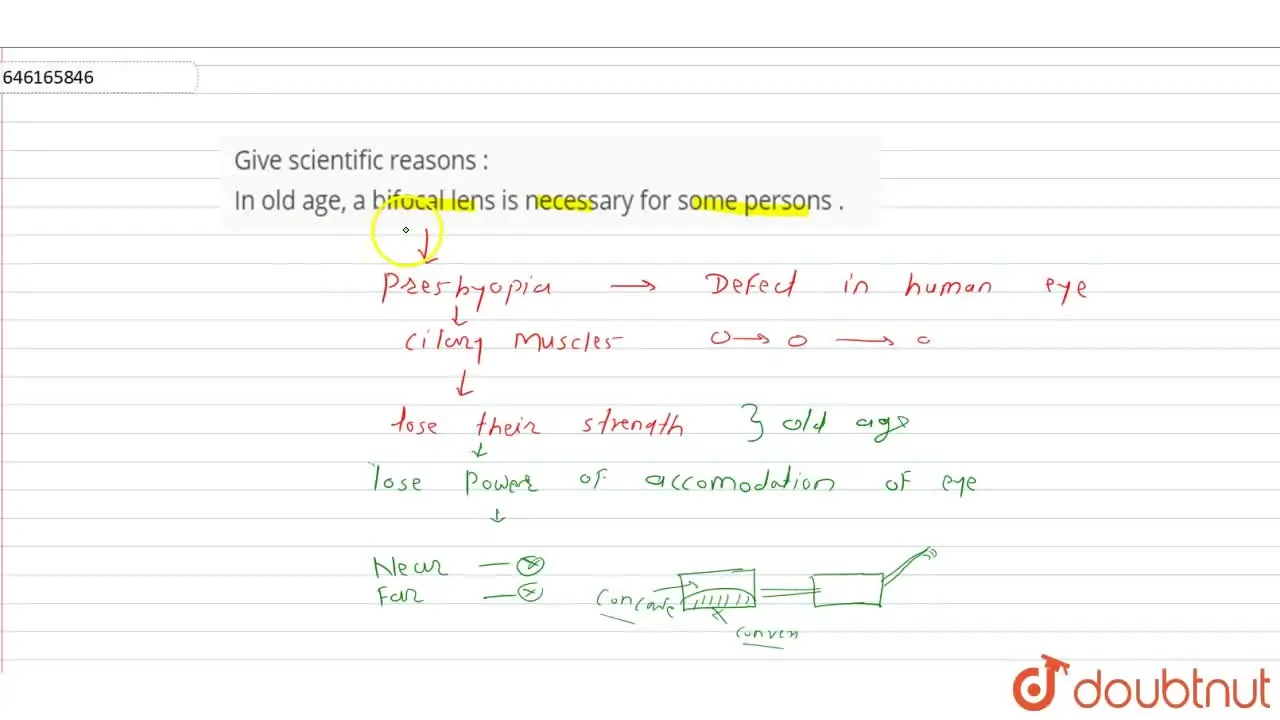 646165846
Give scientific reasons :
In old age, a bifocal lens is necessary for some persons .
Presbyopia → Defect in human eye
Cilary Muscles
lose their strength } old age
lose power of accomodation of eye
Near
Far
Concave
Convex
doubtnut